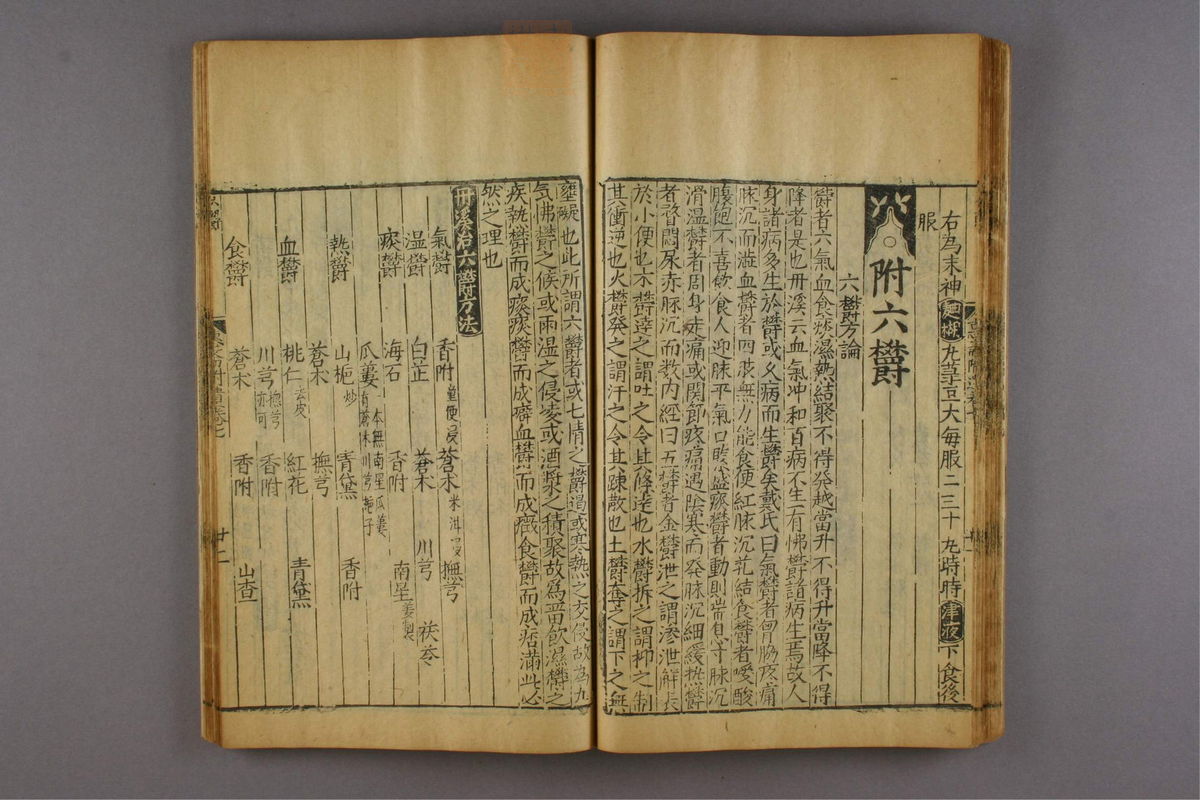 右為末神麯糊丸菉豆大每服二三十丸時時津液下食後
服
附六鬱
六鬱方論
鬱者六氣血食痰濕熱結聚不得發越當升不得升當降不得
降者是也丹溪云血氣冲和百病不生一有怫鬱諸病生焉故人
身諸病多生於鬱或久病而生鬱矣戴氏曰氣鬱者胷脇疼痛
脉沉而濇血鬱者四肢無力能食便紅脉沉芤結食鬱者噯酸
腹飽不喜飲食人迎脉平氣口脉盛痰鬱者動則喘息寸脉沉
滑濕鬱者周身走痛或關節疼痛遇陰寒而發脉沉細緩热鬱
者瞀悶尿赤脉沉而数内經曰五鬱者金鬱泄之謂渗泄解表
於小便也木鬱達之謂吐之令其條達也水鬱折之謂抑之制
其衝逆也火鬱發之謂汗之令其疎散也土鬱奪之謂下之無
壅凝也此所謂六鬱者或七情之鬱遏或寒熱之交侵故為九
气怫鬱之候或雨湿之侵凌或酒漿之積聚故為畄飲濕鬱之
疾热鬱而成痰痰鬱而成癖血鬱而成癥食鬱而成痞滿此必
然之理也
丹溪治六鬱方法
氣鬱 香附童便浸 蒼术米泔浸 撫芎
湿鬱 白芷 蒼术 川芎 茯苓
痰鬱 海石 香附 南星姜製
瓜蔞一本無南星瓜蔞有蒼术川芎梔子
熱鬱 山梔炒 青黛 香附
蒼术 撫芎
血鬱 桃仁去皮 紅花 青黛
川芎撫芎亦可 香附
食鬱 蒼术 香附 山查
廿二